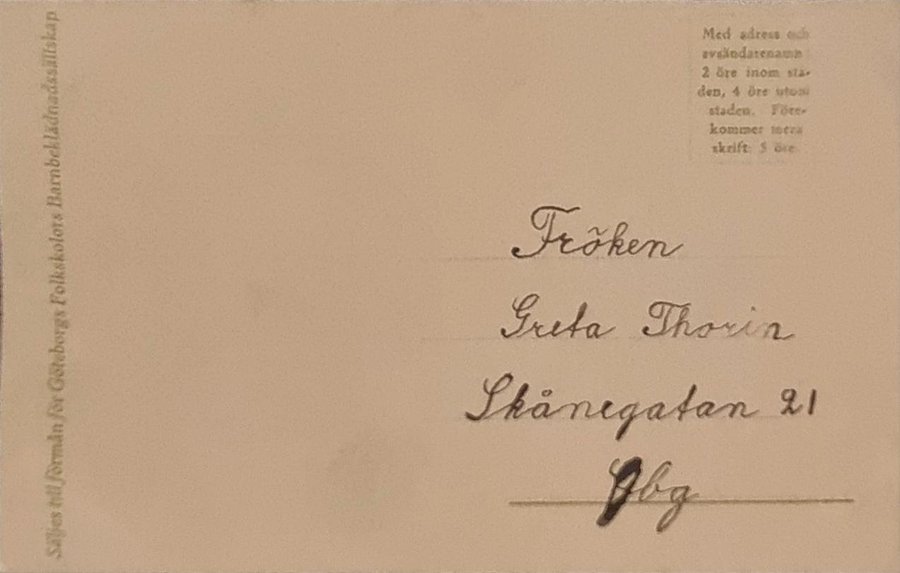 Säljes till förmån för Göteborgs Folkskolors Barnbeklädnadssällskap
Med adress och
avsändarenamn
2 öre inom sta-
den, 4 öre utom
staden. Före-
kommer mera
skrift: 5 öre
Fröken
Greta Thorin
Skånegatan 21
Gbg